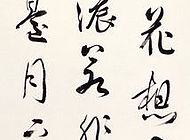 花想
濃若非
臺月下